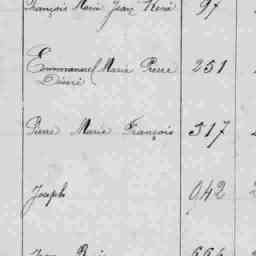 François Marie Jean René 97
Emmanuel Marie Pierre 251
Désiré
Pierre Marie François 317
Joseph 942